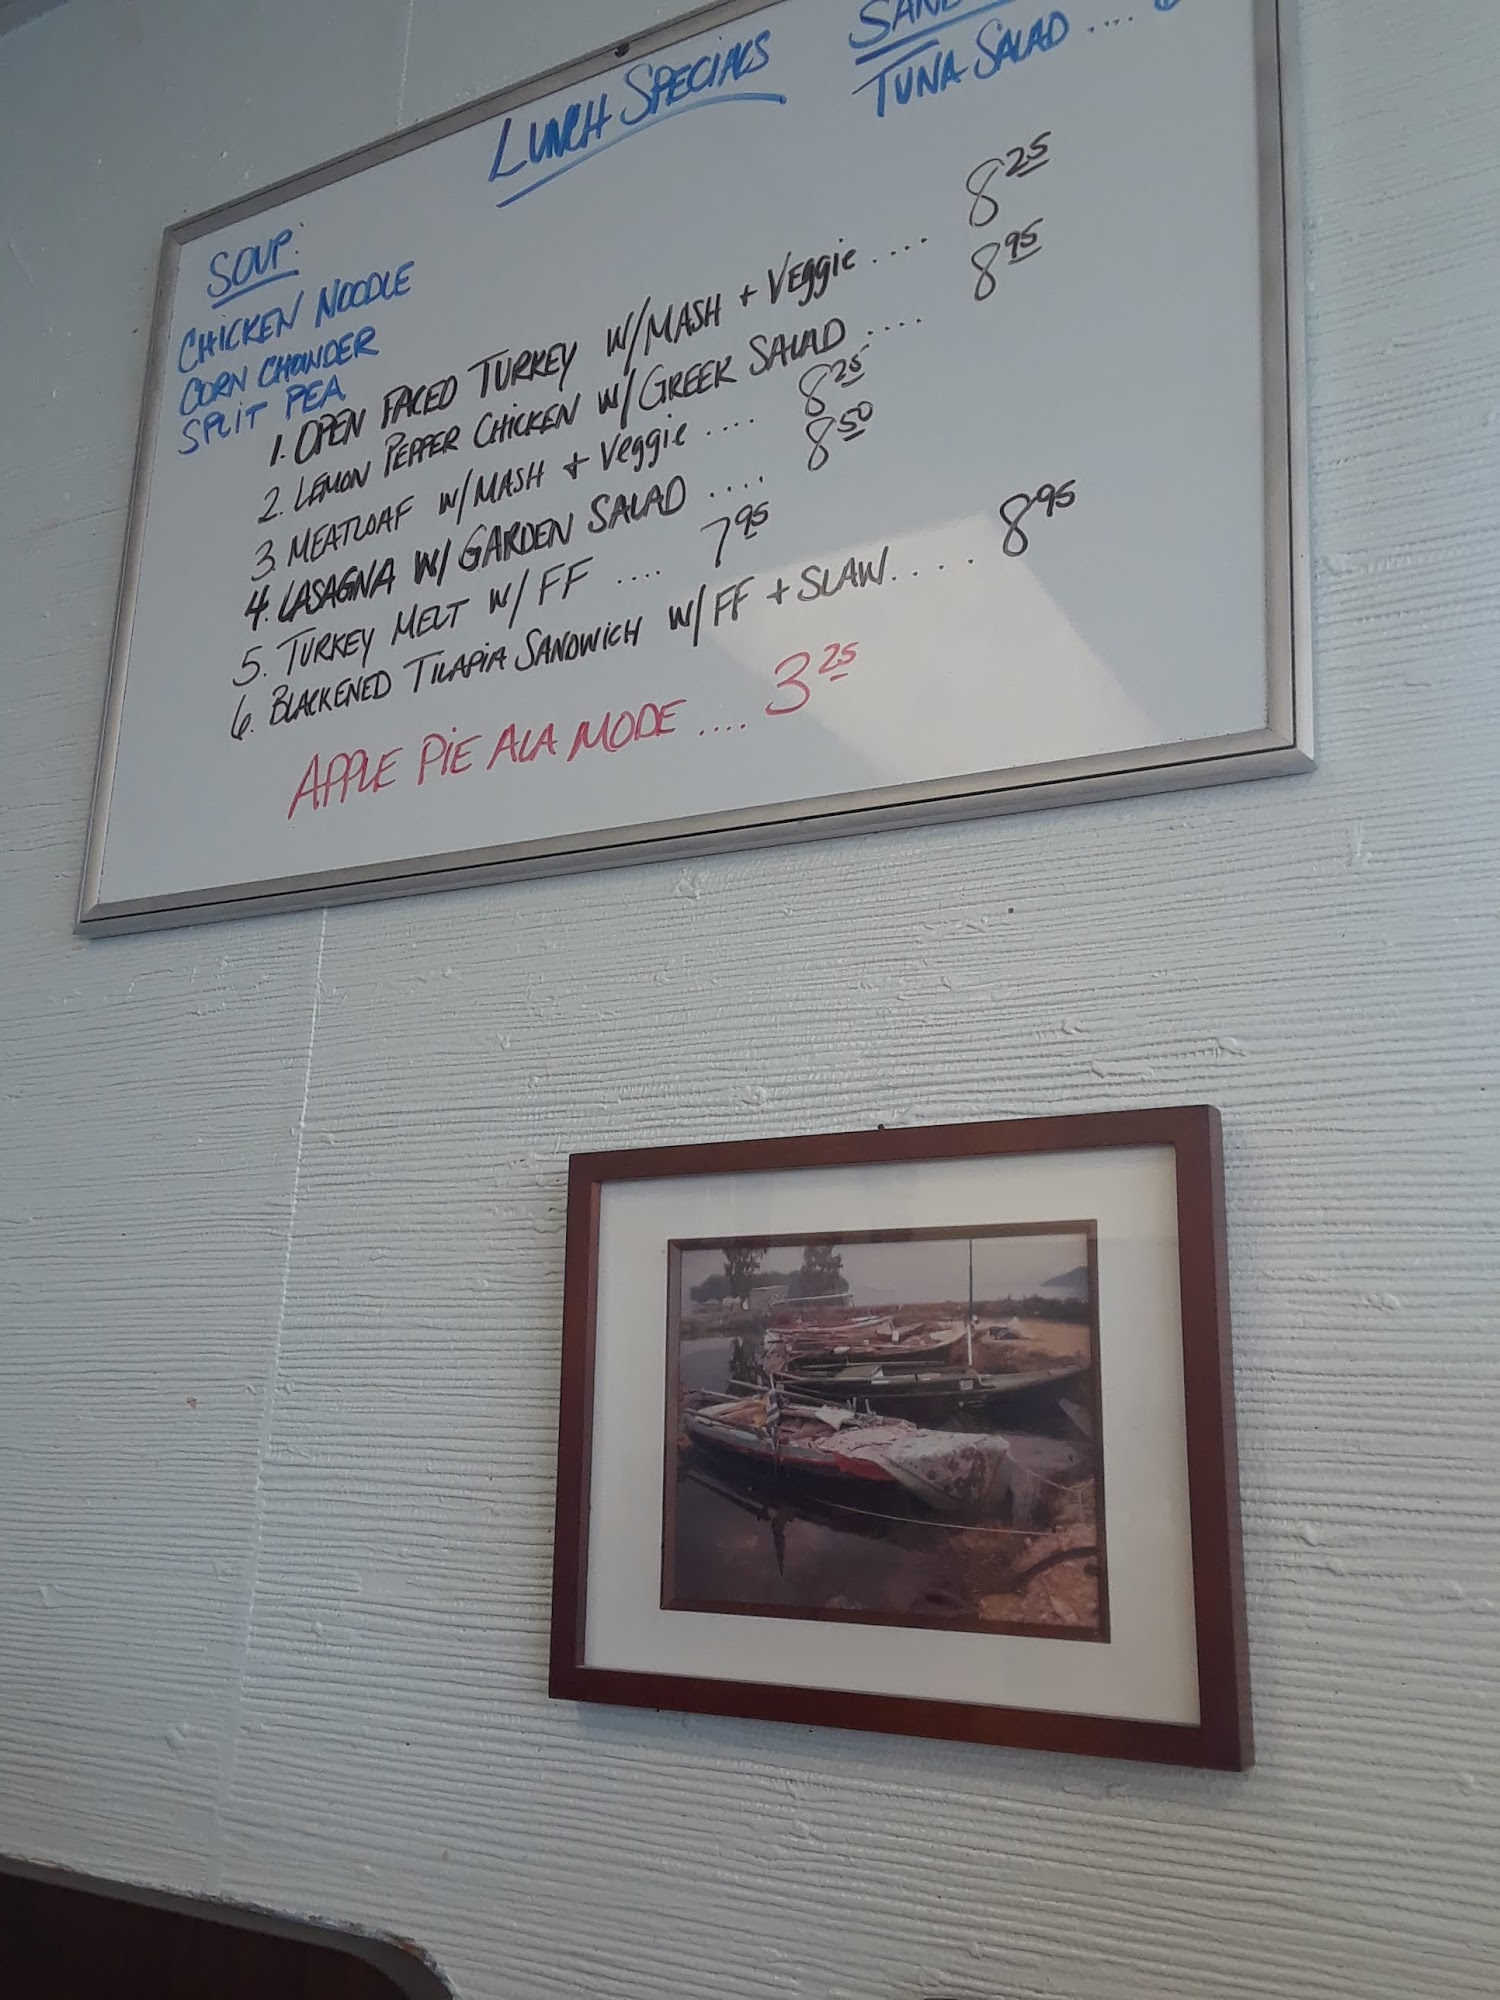 LUNCH SPECIALS
TUNA SALAD ....
SOUP:
CHICKEN NOODLE
CORN CHOWDER
SPLIT PEA
1. OPEN FACED TURKEY W/MASH + Veggie .... 8 25
2. LEMON PEPPER CHICKEN W/GREEK SALAD .... 8 95
3 MEATLOAF W/MASH + Veggie .... 8 25
4. LASAGNA W/ GARDEN SALAD .... 8 50
5. TURKEY MELT W/ FF .... 7 95
6. BLACKENED TILAPIA SANDWICH W/ FF + SLAW.... 8 95
APPLE PIE ALA MODE .... 3 25